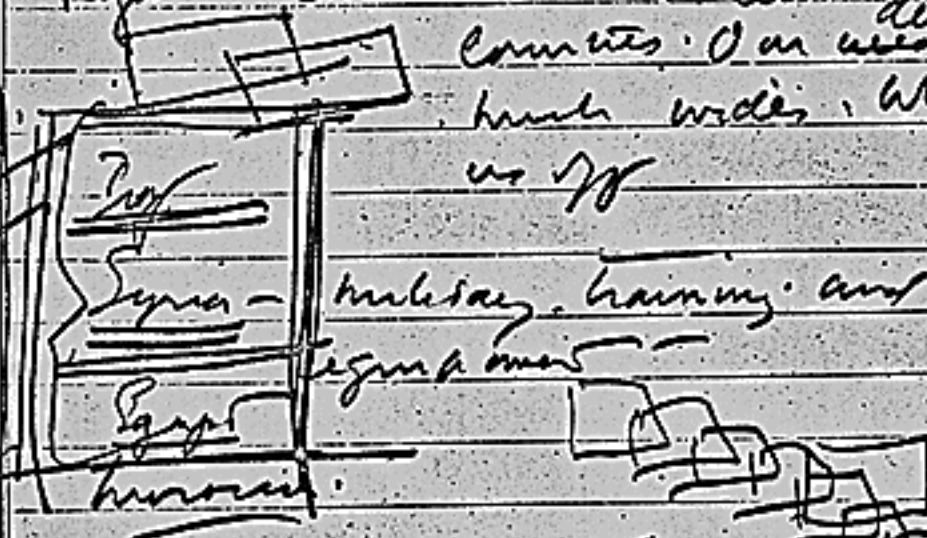 countries. Our
much wider.
us off
Iraq
Syria - military, training and
equipment
Egypt
Morocco.